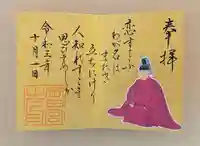 奉拝
恋すてふ
わが名は
まだき
立ちにけり
人知れずこそ
思ひそめしか
令和三年
十月一日